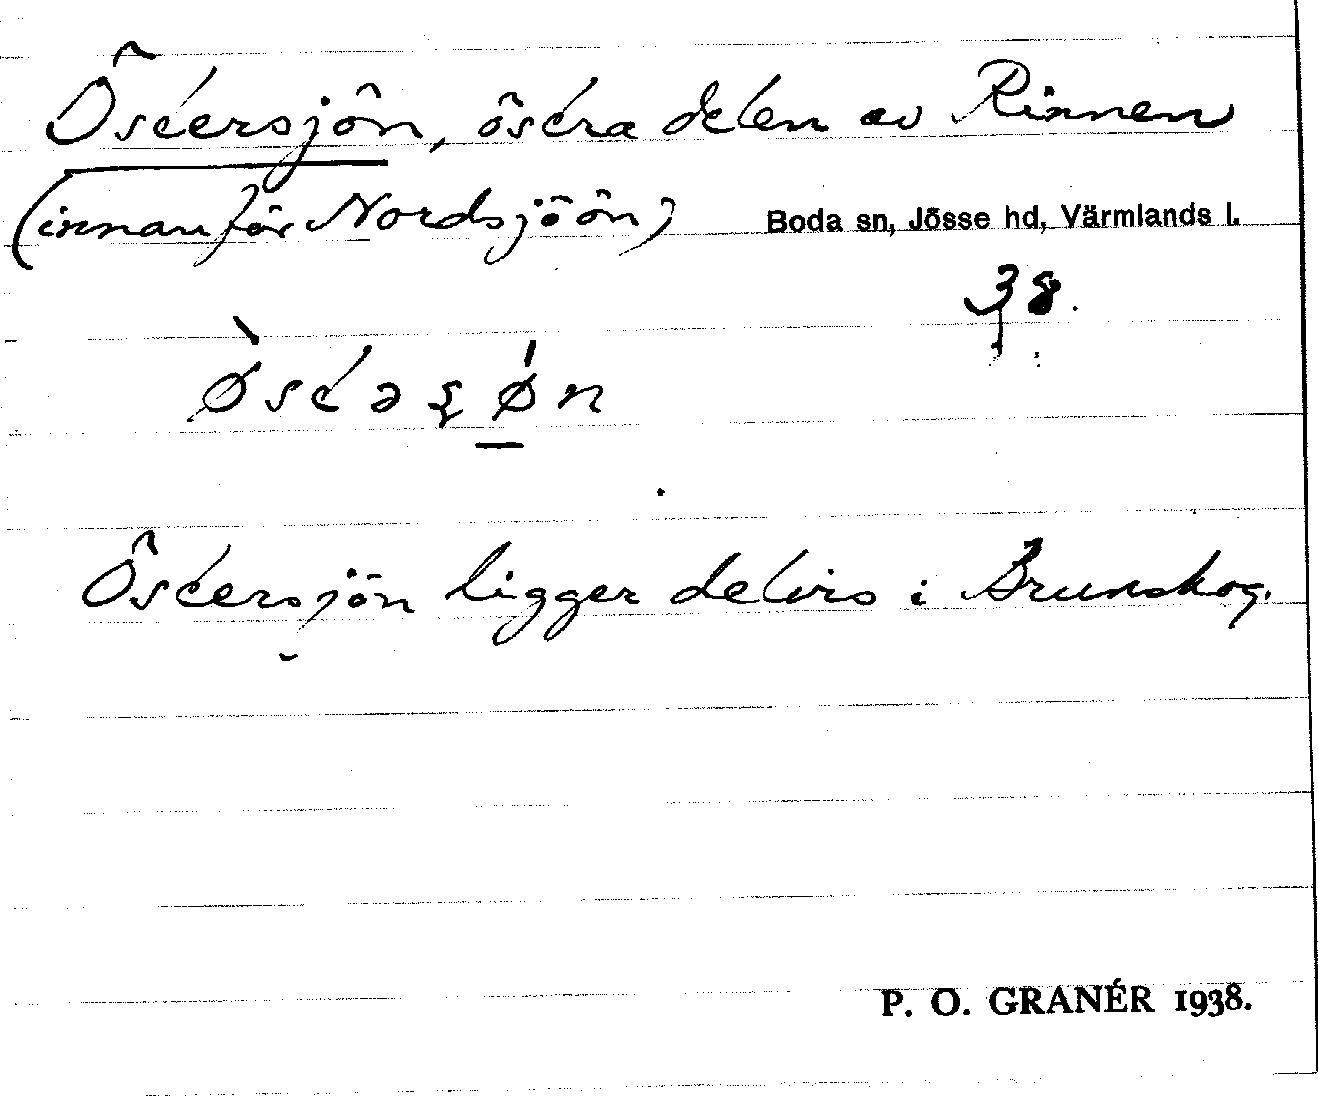 Östersjön, östra delen av Rinnen
(innanför Nordsjöön) Boda sn, Jösse hd, Värmlands l.
38.
Östersjön ligger delvis i Brunskog.
P. O. GRANÉR 1938.